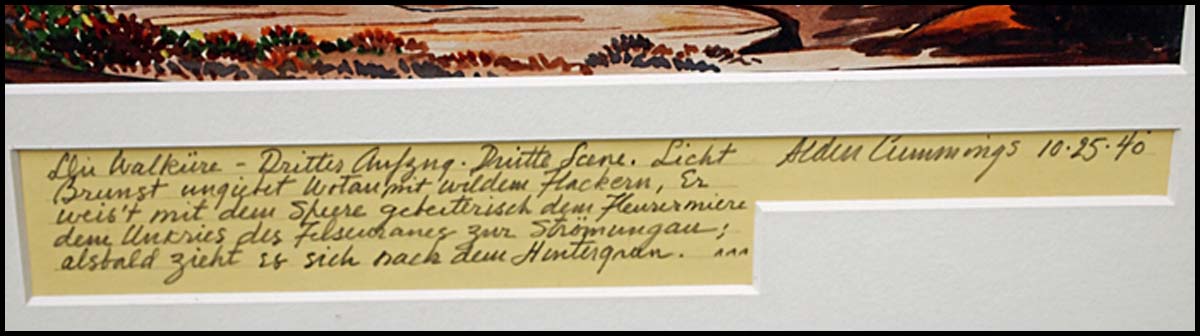 Die Walküre – Dritter Aufzng. Dritte Scene. Licht
Brunst ungiebet Wotan, mit wildem Flackern, Er
weis't mit dem Speere gebeiterisch dem Fleurermiere
dem Unkries des Felseuranes zur Strömungau;
alsbald zieht es sich nach dem Hintergrun.
Alden Cummings 10·25·40